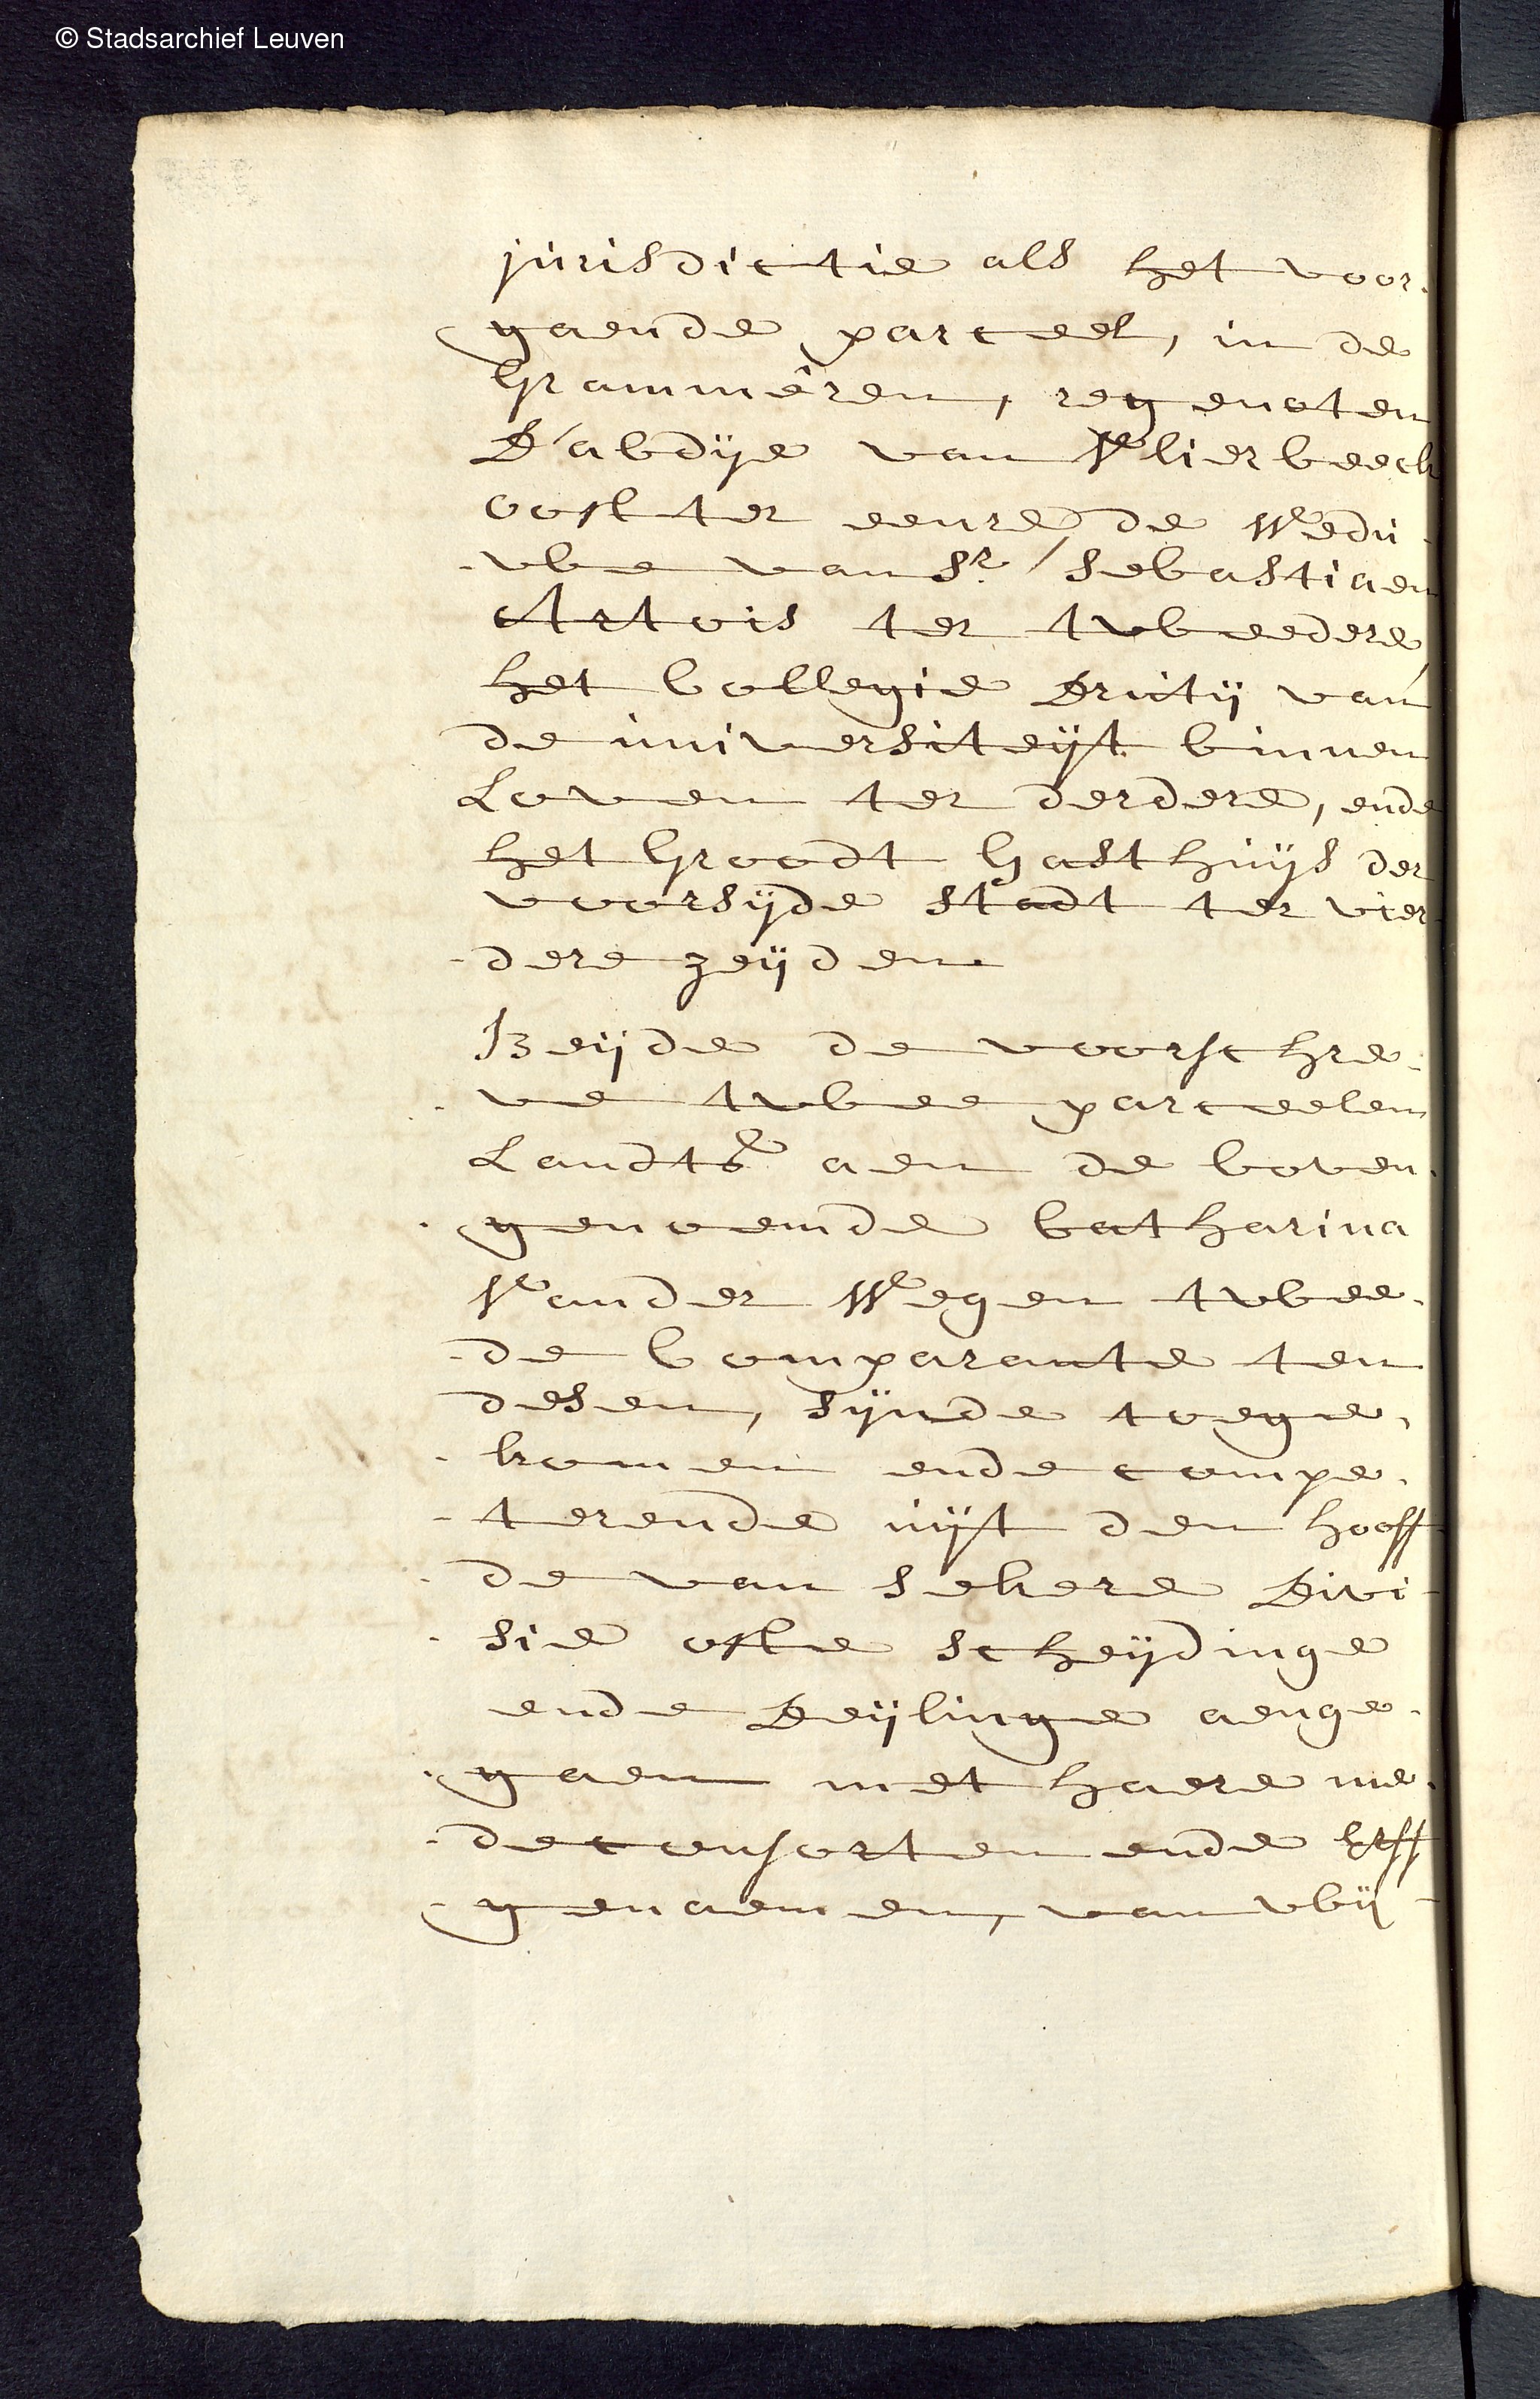 © Stadsarchief Leuven
jurisdictie als het voor-
gaende parceel, in de
Grammêren, regenoten
D'abdije van Vlierbeeck
oost ter eenre de Wedu-
-we van Sr Sebastiaen
Artois ter tweedere,
het Collegie Drutij van
de universiteijt binnen
Loven ter derdere, ende
het Groodt Gasthuijs der
voorsijde stadt ter vier-
-dere zeijden
Beijde de voorschre-
-ve twee parceelen
Landts aen de boven-
-genoemde Catharina
Vander Wegen twee-
-de Comparante ten
desen, sijnde toege-
-komen ende compe-
-terende uijt den hooff
-de van sekere Divi-
-sie ofte scheijdinge
ende Deijlinge aenge-
-gaen met haere me-
-deconsorten ende Erff
-genaemen, van wij-